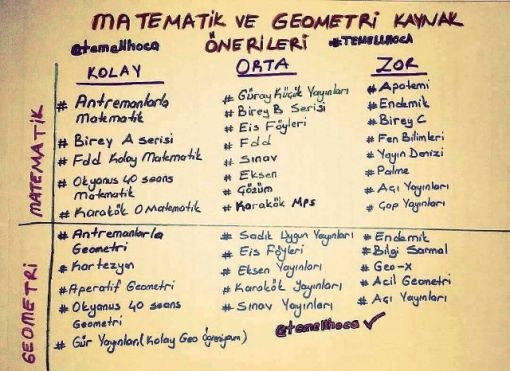 MATEMATİK VE GEOMETRİ KAYNAK
@temellhoca ÖNERİLERİ #TEMELLHOCA
KOLAY ORTA ZOR
MATEMATİK
# Antremanlarla
Matematik
# Birey A serisi
# Fdd Kolay Matematik
# Okyanus 40 seans
Matematik
# Karakök 0 Matematik
# Güray Küçük Yayınları
# Birey B Serisi
# Eis Föyleri
# Fdd
# Sınav
# Eksen
# Çözüm
# Karakök Mps
# Apotemi
# Endemik
# Birey C
# Fen Bilimleri
# Yayın Denizi
# Palme
# Açı Yayınları
# Çap Yayınları
GEOMETRİ
# Antremanlarla
Geometri
# Kartezyen
# Aperatif Geometri
# Okyanus 40 seans
Geometri
# Gür Yayınları (Kolay Geo Öğreniyorum)
# Sadık Uygun Yayınları
# Eis Föyleri
# Eksen Yayınları
# Karakök Yayınları
# Sınav Yayınları
# Endemik
# Bilgi Sarmal
# Geo-x
# Acil Geometri
# Açı Yayınları
@temellhoca